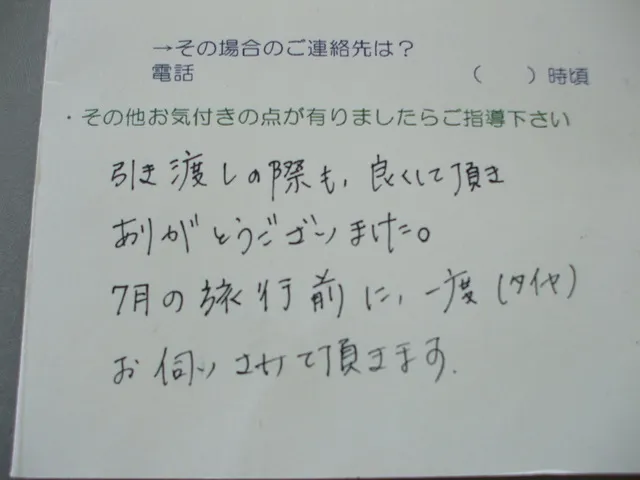 →その場合のご連絡先は？
電話 （ ）時頃
・その他お気付きの点が有りましたらご指導下さい
引き渡しの際も、良くして頂き
ありがとうございました。
7月の旅行前に、一度（タイヤ）
お伺いさせて頂きます.